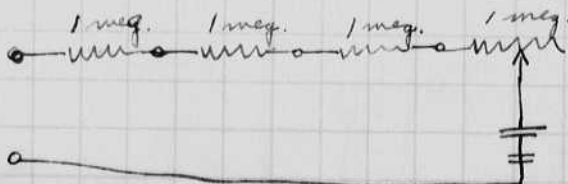 1 meg. 1 meg. 1 meg. 1 meg.